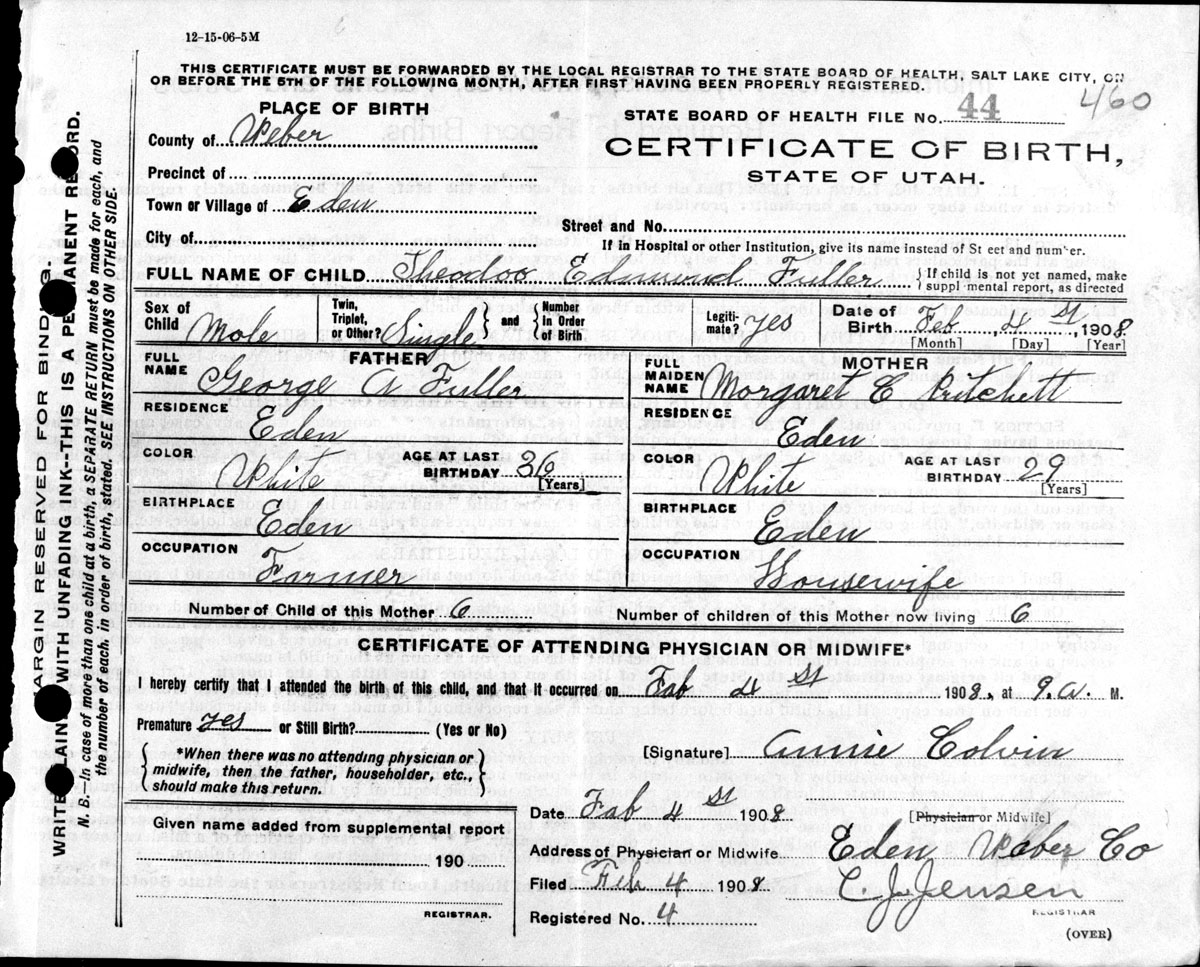 12-15-06-5M
THIS CERTIFICATE MUST BE FORWARDED BY THE LOCAL REGISTRAR TO THE STATE BOARD OF HEALTH, SALT LAKE CITY, ON
OR BEFORE THE 5TH OF THE FOLLOWING MONTH, AFTER FIRST HAVING BEEN PROPERLY REGISTERED.
460
PLACE OF BIRTH
STATE BOARD OF HEALTH FILE No. 44
County of Weber
CERTIFICATE OF BIRTH,
Precinct of
STATE OF UTAH.
Town or Village of Eden
Street and No.
City of
If in Hospital or other Institution, give its name instead of St eet and number.
FULL NAME OF CHILD Theodoo Edmund Fuller { If child is not yet named, make
suppl mental report, as directed
Sex of Child Male
Twin, Triplet, or Other? Single } and { Number in Order of Birth
Legiti-mate? Yes
Date of Birth Feb 4 st, 1908.
[Month] [Day] [Year]
FATHER
FULL NAME George A Fuller
MOTHER
FULL MAIDEN NAME Margaret C Pritchett
RESIDENCE Eden
RESIDENCE Eden
COLOR White AGE AT LAST BIRTHDAY 36 [Years]
COLOR White AGE AT LAST BIRTHDAY 29 [Years]
BIRTHPLACE Eden
BIRTHPLACE Eden
OCCUPATION Farmer
OCCUPATION Housewife
Number of Child of this Mother 6
Number of children of this Mother now living 6
CERTIFICATE OF ATTENDING PHYSICIAN OR MIDWIFE*
I hereby certify that I attended the birth of this child, and that it occurred on Fab 4 st 1908., at 9. a. M.
Premature yes or Still Birth? (Yes or No)
{ *When there was no attending physician or
midwife, then the father, householder, etc.,
should make this return. }
[Signature] Annie Colvin
[Physician or Midwife]
Date Fab 4 st 1908
Given name added from supplemental report
190
REGISTRAR.
Address of Physician or Midwife Eden Waber Co
Filed Feb 4 1908 C. J. Jensen
REGISTRAR
Registered No. 4
(OVER)
MARGIN RESERVED FOR BINDING.
WRITE PLAINLY WITH UNFADING INK--THIS IS A PERMANENT RECORD.
N. B. In case of more than one child at a birth, a SEPARATE RETURN must be made for each, and
the number of each, in order of birth, stated. SEE INSTRUCTIONS ON OTHER SIDE.